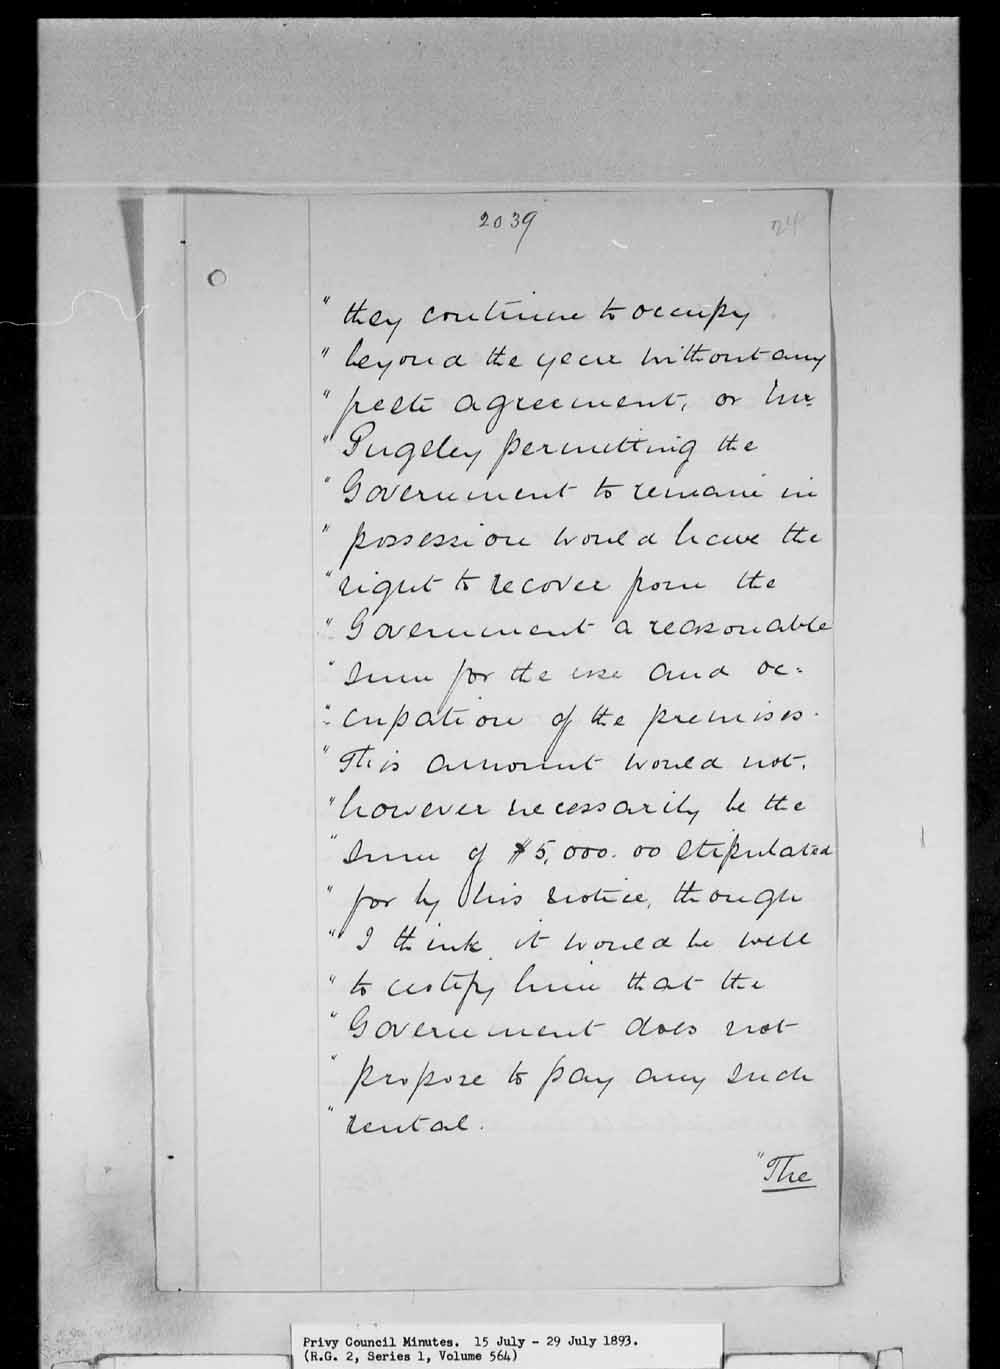 2039
24
" they continue to occupy
" beyond the year without any
" fresh agreement, or Mr.
" Pugsley permitting the
" Government to remain in
" possession would have the
" right to recover from the
" Government a reasonable
" sum for the use and oc=
" cupation of the premises.
" This amount would not,
" however necessarily be the
" sum of $5,000.00 stipulated
" for by his notice, though
" I think it would be well
" to notify him that the
" Government does not
" propose to pay any such
" rental.
" The
Privy Council Minutes. 15 July - 29 July 1893.
(R.G. 2, Series 1, Volume 564)